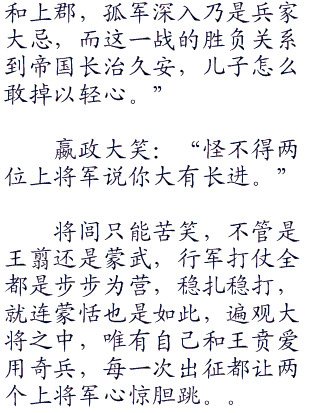 和上郡，孤军深入乃是兵家
大忌，而这一战的胜负关系
到帝国长治久安，儿子怎么
敢掉以轻心。”
嬴政大笑：“怪不得两
位上将军说你大有长进。”
将闾只能苦笑，不管是
王翦还是蒙武，行军打仗全
都是步步为营，稳扎稳打，
就连蒙恬也是如此，遍观大
将之中，唯有自己和王贲爱
用奇兵，每一次出征都让两
个上将军心惊胆跳。。